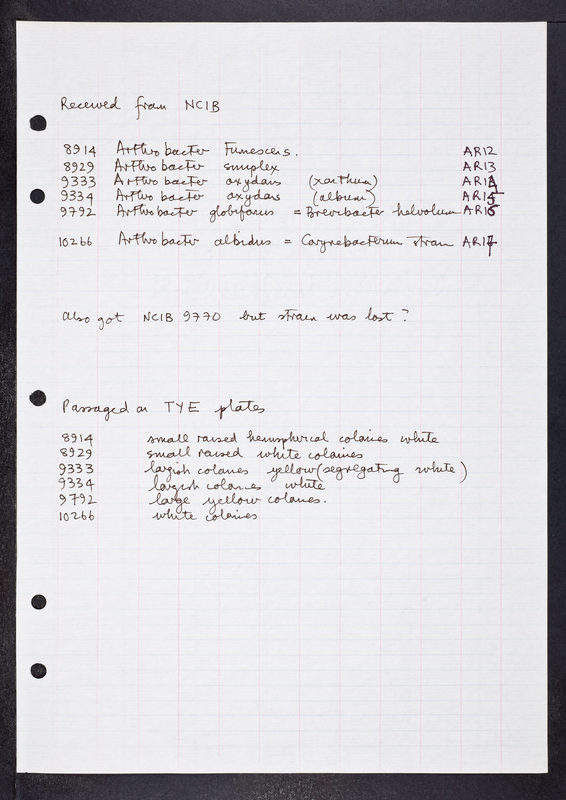 Received from NCIB
8914 Arthrobacter Fumescens. AR12
8929 Arthrobacter simplex AR13
9333 Arthrobacter oxydans (xanthum) AR14
9334 Arthrobacter oxydans (album) AR15
9792 Arthrobacter globiformis = Brevibacter helvolum AR16
10266 Arthrobacter albidus = Corynebacterium strain AR17
Also got NCIB 9770 but strain was lost?
Passaged on TYE plates
8914 small raised hemispherical colonies white
8929 small raised white colonies
9333 largish colonies yellow (segregating white)
9334 largish colonies white
9792 large yellow colonies.
10266 white colonies